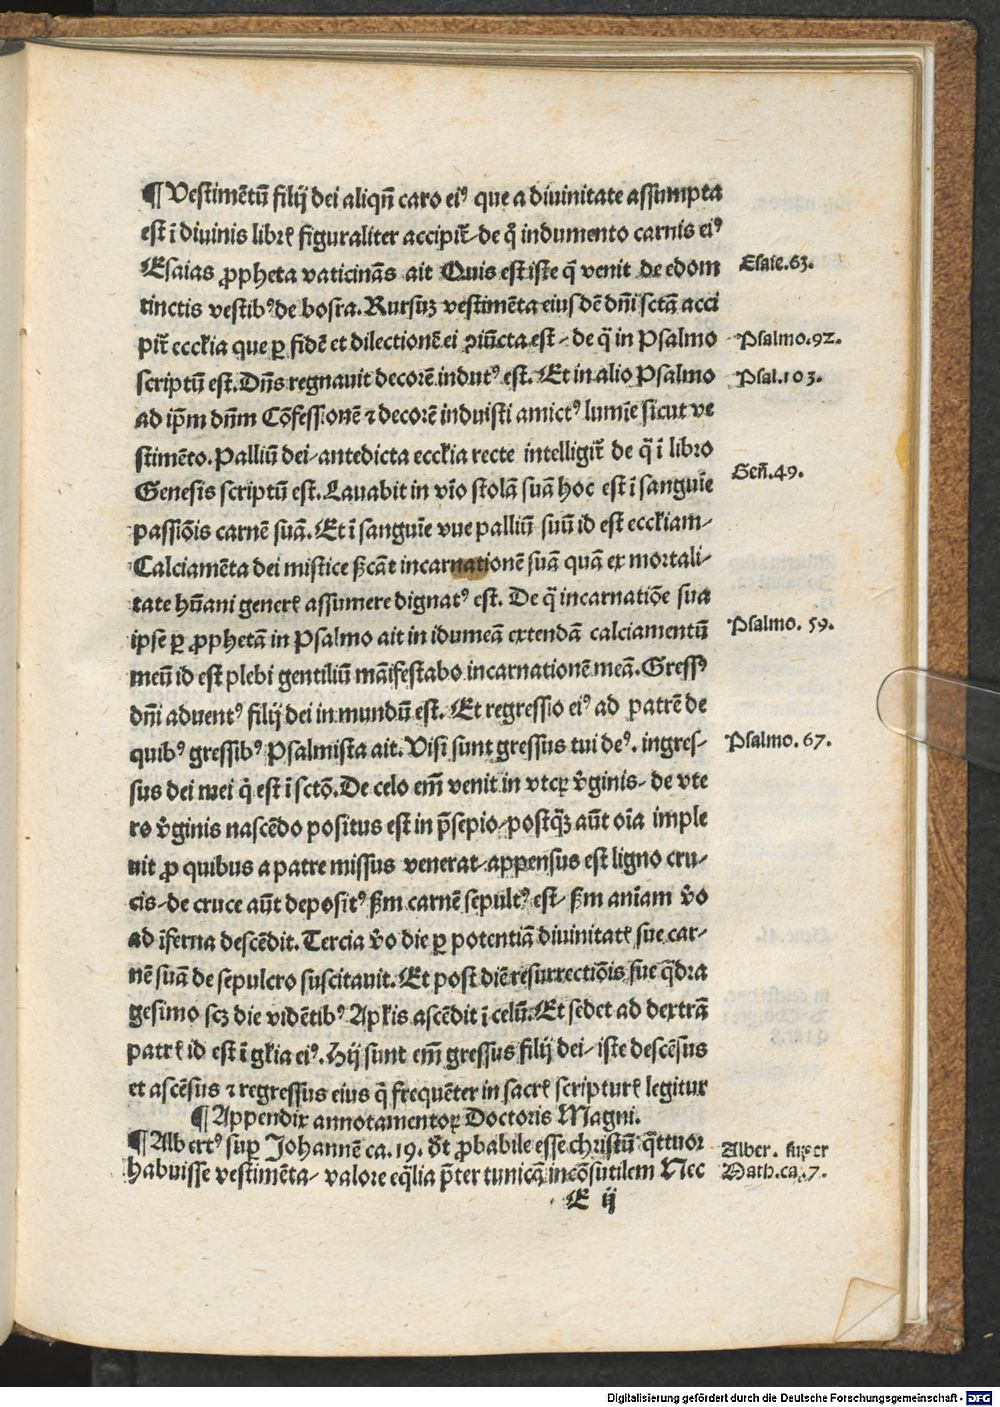 ¶ Vestimētū filij dei aliqn̄ caro eiꝰ que a diuinitate assumpta
est ī diuinis librꝭ figuraliter accipit᷑ / de q̄ indumento carnis eiꝰ
Esaias ꝓpheta vaticinās ait Quis est iste q̄ venit de edom
tinctis vestibꝰ de bosra. Rursuꝫ vestimēta eiusdē dn̄i sctā acci
pit᷑ eccƚia que ꝑ fidē et dilectionē ei ꝯiūcta est / de q̄ in Psalmo
scriptū est. Dn̄s regnauit decorē indutꝰ est. Et in alio Psalmo
ad ip̄m dn̄m Cōfessionē ⁊ decorē induisti amictꝰ lumīe sicut ve
stimēto. Palliū dei / antedicta eccƚia recte intelligit᷑ de q̄ ī libro
Genesis scriptū est. Lauabit in vīo stolā suā hoc est ī sanguīe
passiōis carnē suā. Et ī sanguīe vue palliū suū id est eccƚiam /
Calciamēta dei mistice ẜcāt incarnationē suā quā ex mortali /
tate hūani generꝭ assumere dignatꝰ est. De q̄ incarnatiōe sua
ipse ꝑ ꝓphetā in Psalmo ait in idumeā extendā calciamentū
meū id est plebi gentiliū māifestabo incarnationē meā. Gressꝰ
dn̄i aduentꝰ filij dei in mundū est. Et regressio eiꝰ ad patrē de
quibꝰ gressibꝰ Psalmista ait. Visi sunt gressus tui deꝰ. ingres /
sus dei mei q̇ est ī sctō. De celo em̄ venit in vteꝝ v̄ginis / de vte
ro v̄ginis nascēdo positus est in p̄sepio / postq̄ꝫ aūt oīa imple
uit ꝓ quibus a patre missus venerat / appensus est ligno cru /
cis / de cruce aūt depositꝰ ẜm carnē sepultꝰ est / ẜm anīam v̄o
ad īferna descēdit. Tercia v̄o die ꝑ potentiā diuinitatꝭ sue car /
nē suā de sepulcro suscitauit. Et post diē resurrectiōis sue q̄dra
gesimo scꝫ die vidētibꝰ Apƚis ascēdit ī celū. Et sedet ad dextrā
patrꝭ id est ī gƚia eiꝰ. Hij sunt em̄ gressus filij dei / iste descēsus
et ascēsus ⁊ regressus eius q̄ frequēter in sacrꝭ scripturꝭ legitur
¶ Appendix annotamentoꝝ Doctoris Magni.
¶ Albertꝰ suꝑ Johannē ca. 19. d̄t ꝓbabile esse christū q̄ttuor
habuisse vestimēta / valore eq̄lia p̄ter tunicā incōsutilem Nec
E ij
Esaie. 63.
Psalmo. 92.
Psal. 103.
Gen̄. 49.
Psalmo. 59.
Psalmo. 67.
Alber. super
Math. ca. 7.
Digitalisierung gefördert durch die Deutsche Forschungsgemeinschaft - DFG